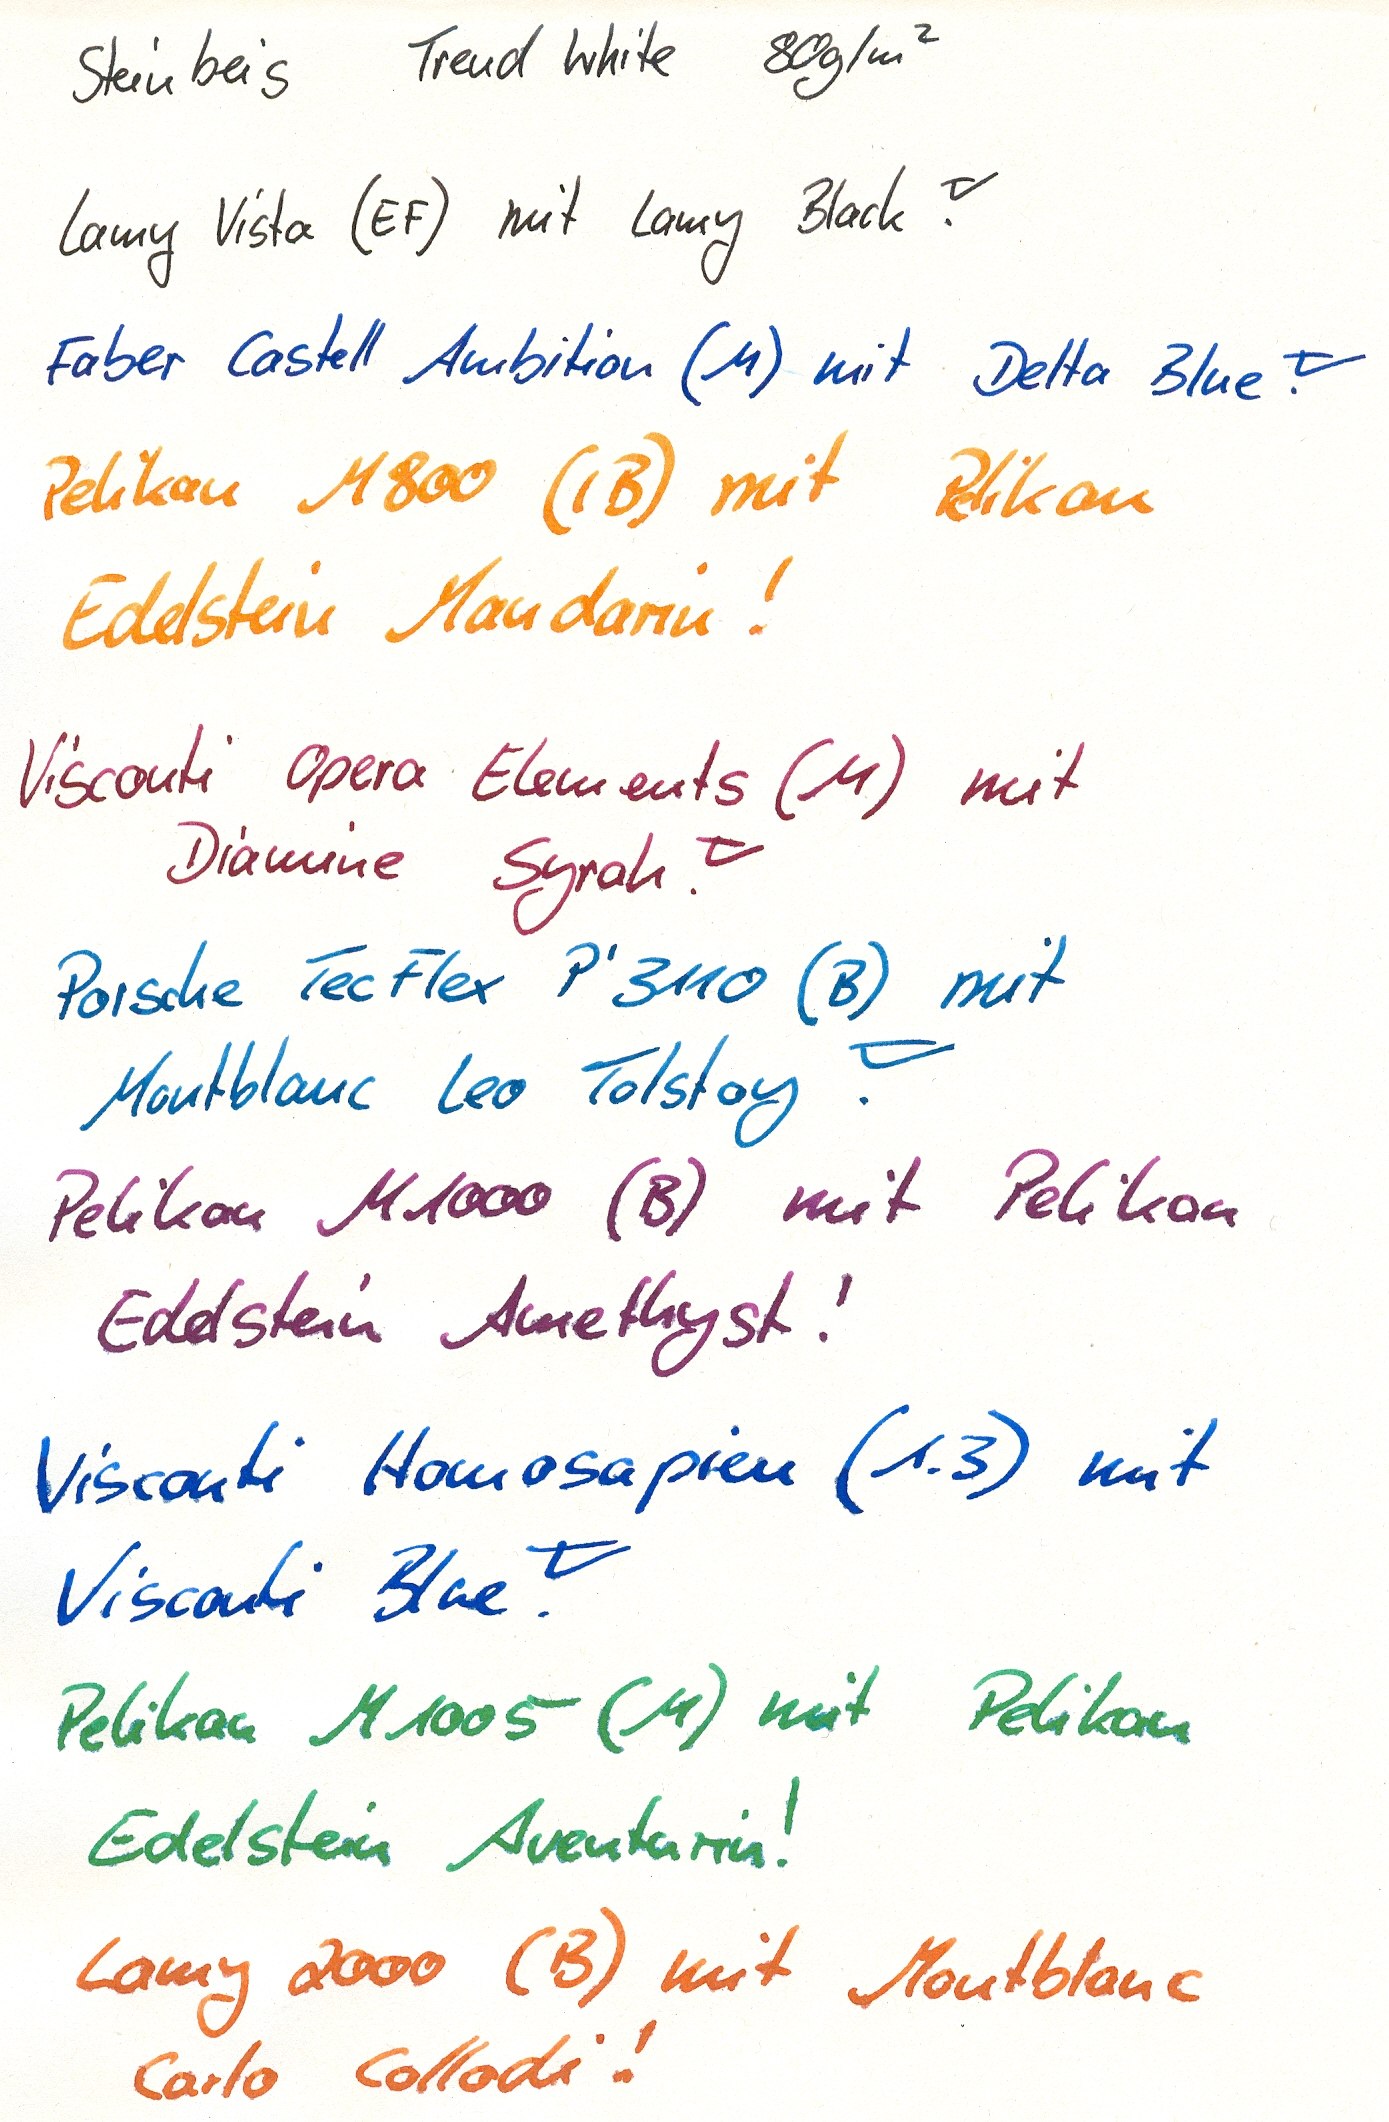 Steinbeis Trend White 80g/m²
Lamy Vista (EF) mit Lamy Black!
Faber Castell Ambition (M) mit Delta Blue!
Pelikan M800 (IB) mit Pelikan
Edelstein Mandarin!
Visconti Opera Elements (M) mit
Diamine Syrah!
Porsche TecFlex P'3110 (B) mit
Montblanc Leo Tolstoy!
Pelikan M1000 (B) mit Pelikan
Edelstein Amethyst!
Visconti Homosapien (1.3) mit
Visconti Blue!
Pelikan M1005 (M) mit Pelikan
Edelstein Aventurin!
Lamy 2000 (B) mit Montblanc
Carlo Collodi!